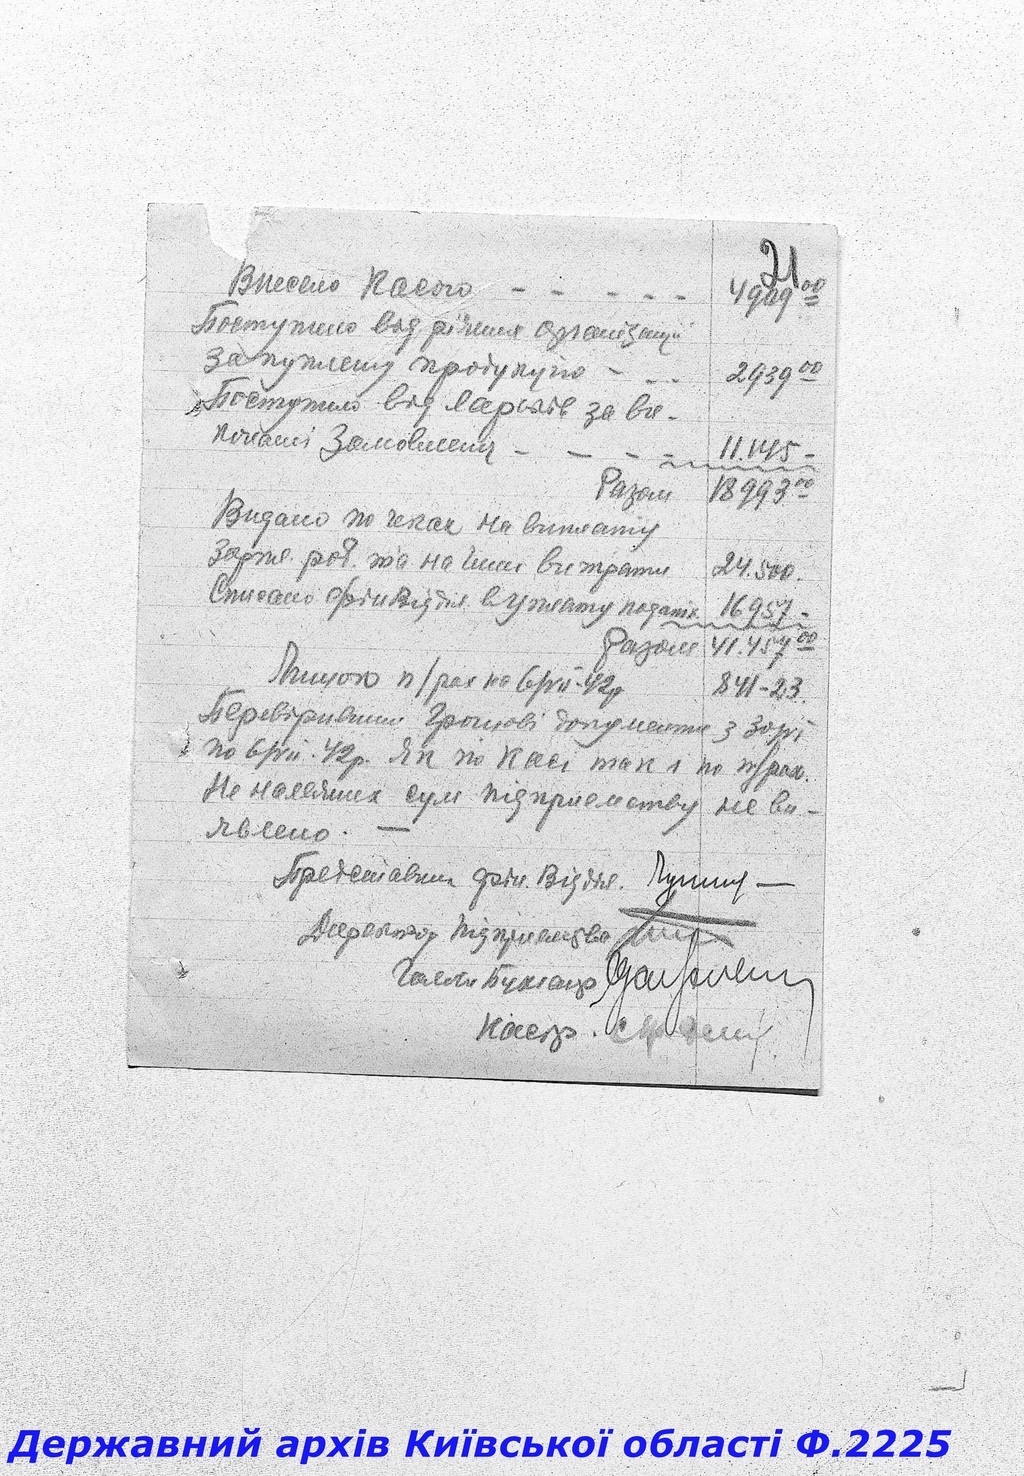 21
Внесено Касою - - - - - 4909 00
Поступило від різних організацій
за куплену продукцію - - - 2939 00
Поступило від ларьків за ви-
конані Замовленя - - - - 11.145 -
Разом 18993 00
Видано по чеках на виплату
Зарпл. роб. та на інші витрати 24.500.
Списано фінвідділ. в уплату податків 16957 -
Разом 41.457 00
Лишок п/рах на 6/VII-42р 841-23
Перевіривши Грошові документи з
по 6/VII-42р. Як по Касі так і по п/рах.
Не належних сум підприємству не ви-
явлено. —
Представник фін. Відділ.
Директор Підприємства
Голов Бухгалтер
Касір.
Державний архів Київської області Ф.2225